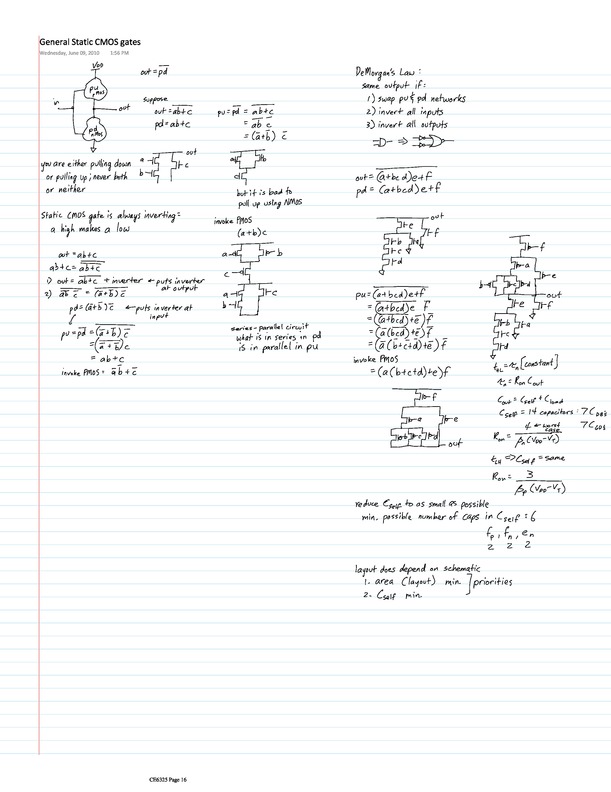 General Static CMOS gates
Wednesday, June 09, 2010 1:56 PM
VDD
out = \overline{pd}
pu
pmos
in
out
pd
nmos
suppose
out = \overline{ab+c}
pd = ab+c
pu = \overline{pd} = \overline{ab+c}
= \overline{ab} \overline{c}
= (\overline{a}+\overline{b}) \overline{c}
you are either pulling down
or pulling up; never both
or neither
out
a
c
b
a
b
c
but it is bad to
pull up using NMOS
Static CMOS gate is always inverting =
a high makes a low
invoke PMOS
(a+b)c
out = ab+c
1) out = \overline{ab+c} + inverter ← puts inverter
at output
pd = (\overline{a}+\overline{b}) \overline{c} ← puts inverter at
input
= ab+c
invoke PMOS = \overline{a} \overline{b} + \overline{c}
a
b
c
a
c
b
series-parallel circuit
what is in series in pd
is in parallel in pu
DeMorgan's Law:
same output if:
1) swap pu & pd networks
2) invert all inputs
3) invert all outputs
out = \overline{(a+bcd)e+f}
pd = (a+bcd)e+f
out
e
f
b
a
c
d
pu = \overline{(a+bcd)e+f}
= \overline{(a+bcd)e} \overline{f}
= (\overline{(a+bcd)}+\overline{e}) \overline{f}
= (\overline{a}(\overline{bcd})+\overline{e}) \overline{f}
= (\overline{a}(\overline{b}+\overline{c}+\overline{d})+\overline{e}) \overline{f}
invoke PMOS
= (a(b+c+d)+e)f
f
a
e
b
c
d
out
f
a
e
b
c
d
out
e
f
b
a
c
d
[constant]
Cout = Cself + Cload
Cself = 14 capacitors:
worst
case
Ron = 4 / βn(VDD-VT)
tLH ⇒ Cself = same
Ron = 3 / βp(VDD-VT)
reduce Cself to as small as possible
min. possible number of caps in Cself = 6
fp, fn, en
2 2 2
layout does depend on schematic
1. area (layout) min. ] priorities
2. Cself min.
CE6325 Page 16